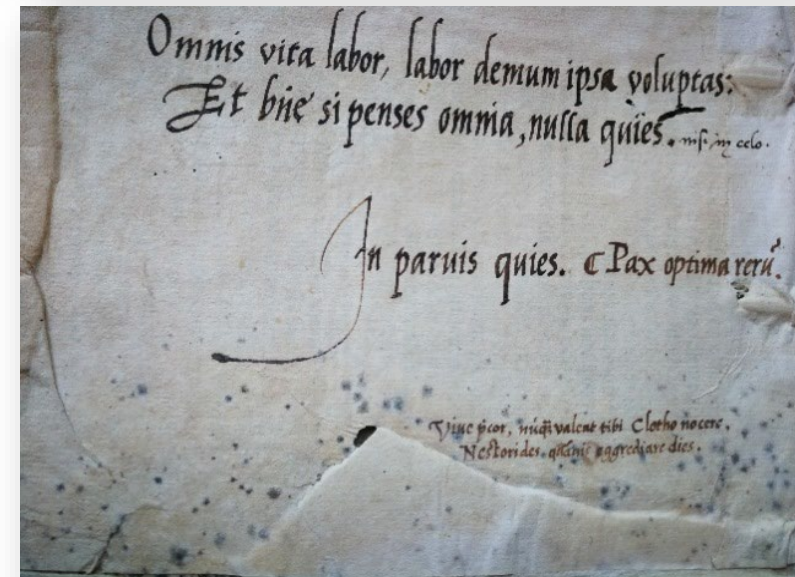 Omnis vita labor, labor demum ipsa voluptas:
Et bñe si penses omnia, nulla quies. nisi in celo.
In paruis quies. ⸿ Pax optima rerũ.
Viue p̃cor, nũq̃ valeat tibi Clotho nocere,
Nestorides aggrediare dies.